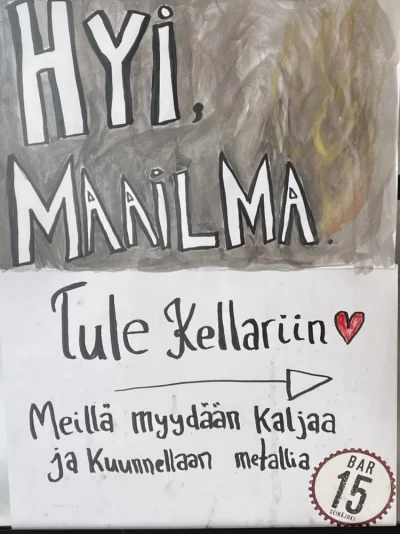 HYi,
MAAiLMA.
Tule Kellariin
Meillä myydään Kaljaa
ja Kuunnellaan metallia
BAR
15
SEINÄJOKI